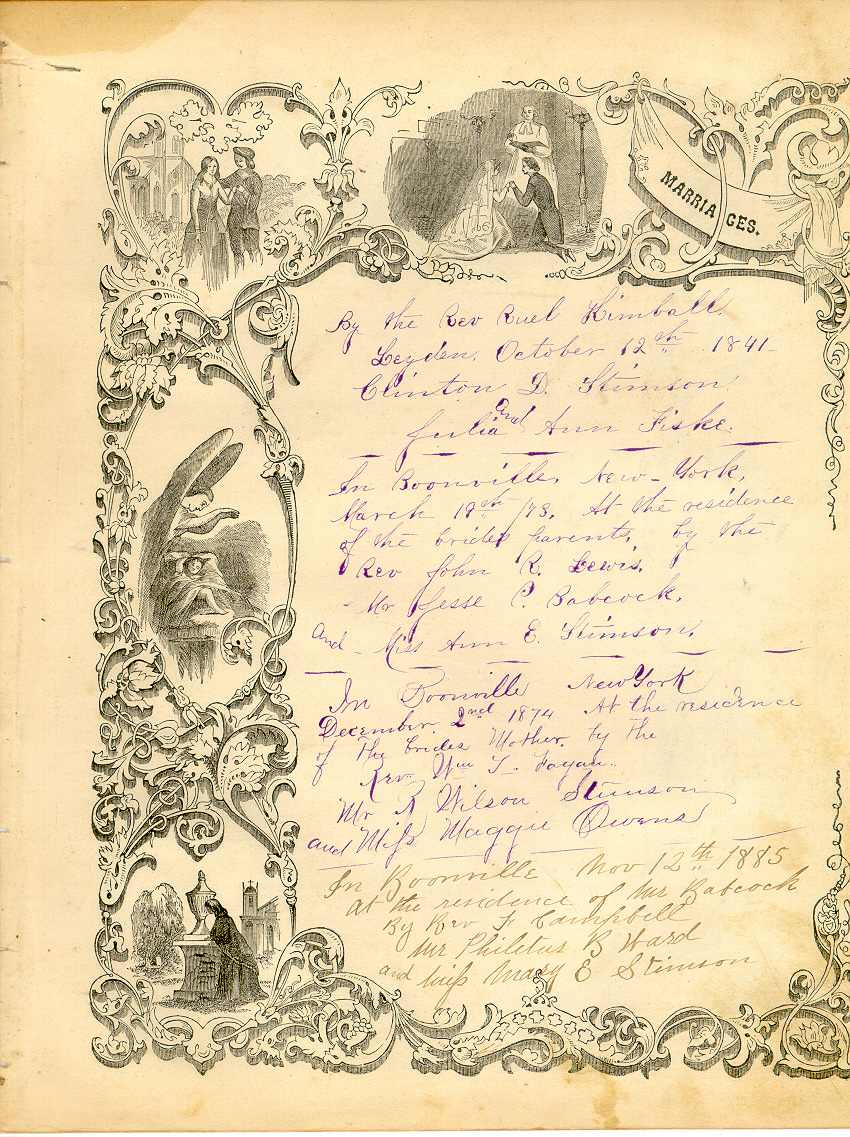 MARRIAGES.
By the Rev Ruel Kimball.
Leyden, October 12th 1841
Clinton D. Stimson
And
Julia Ann Fiske.
In Boonville, New-York,
March 19th /73, At the residence
of the brides parents, by the
Rev John R. Lewis,
Mr Jesse C. Babcock,
And - Miss Ann E. Stimson,
In Boonville New York
December 2nd 1874 At the residence
of the brides Mother, by the
Rev. Wm T. Fagan.
Mr R Wilson Stimson
and Miss Maggie Owens
In Boonville Nov 12th 1885
at the residence of Mr Babcock
By Rev F Campbell
Mr Philetus B Ward
and Miss Mary E Stimson